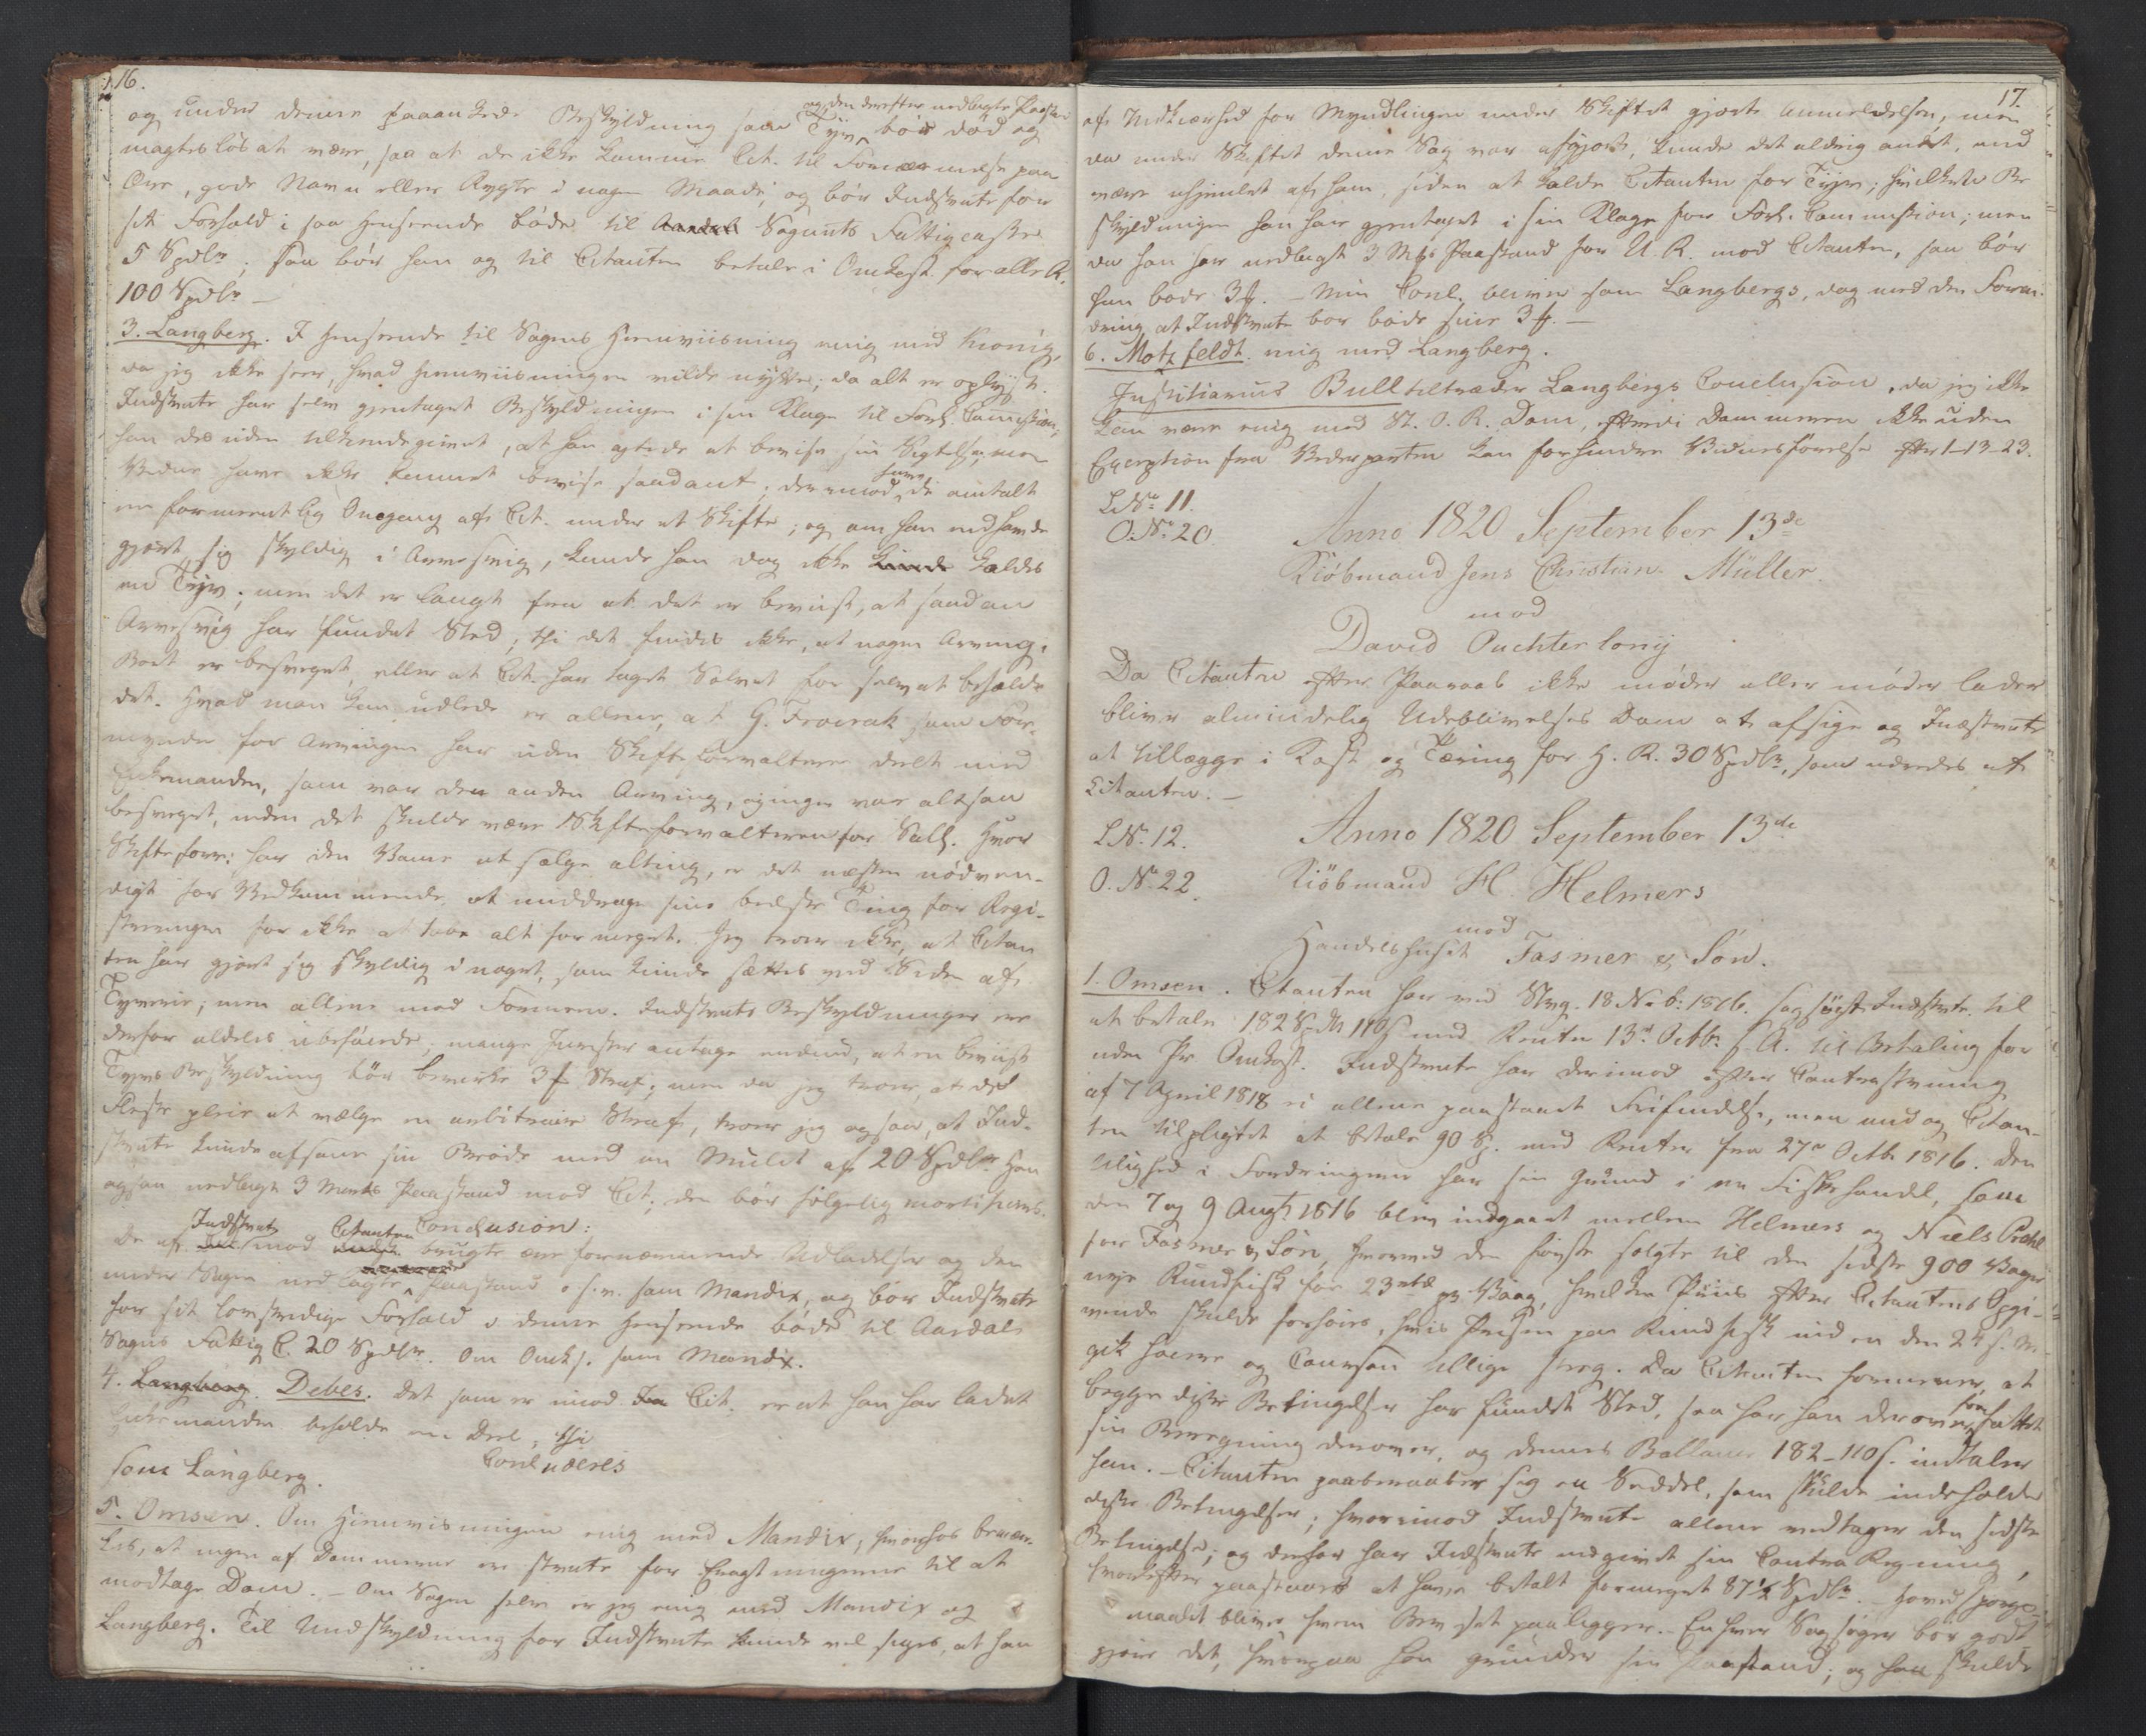 16.
og under denne paaankede Beskyldning som Tyv og den derefter nedlagte Paastand bör död og
magteslös at være, saa at de ikke komme Cit. til Fornærmelse paa
Ære, gode Navn eller Rygte i nogen Maade, og bör Indstevnte for
sit Forhold i saa Henseende böde til Aardals Sogns Fattigcasse
5 Spdlr; saa bör han og til Citanten betale i Omkost. for alle R.
100 Spdlr —
3. Langberg. I Henseende til Sagens Hiemviisning enig med Kiönig,
da jeg ikke seer, hvad Hiemviisningen vilde nytte; da alt er oplyst.
Indstevnte har selv gjentaget Beskyldningen i sin Klage til Forl. Comission,
han desuden tilkiendegivet, at han agtede at bevise sin Sigtelse, men
Vidner have ikke kunnet bevise saadant; derimod have de omtalt
en formeentlig Omgang af Cit. under et Skifte; og om han end havde
gjort sig skyldig i Arvesvig, kunde han dog ikke kaldes
en Tyv; men det er langt fra at det er beviist, at saadan
Arvesvig har fundet Sted, thi det findes ikke, at nogen Arving i
Boet er besveget, eller at Cit. har taget Sölvet for selv at beholde
det. Hvad man kan udlede er allene, at G. Frovrak som For-
mynder for Arvingen har uden Skifteforvalteren deelt med
Enkemanden, som var den anden Arving, og ingen var altsaa
besveget, uden det skulde være Skifteforvalteren for Sall. Hvor
Skifteforv: har den Vane at sælge alting, er det næsten nödven-
digt for Vedkommende, at unddrage sine bedste Ting for Regi-
streringen for ikke at tabe alt for meget. Jeg troer ikke, at Citan
ten har gjort sig skyldig i noget, som kunde sættes ved Siden af
Tyverie; men allene mod Formen. Indstevntes Beskyldninger ere
derfor aldeles ubeföiede; mange Jurister antage endnu, at en beviist
Tyvs Beskyldning bör bevirke 3 f Straf; men da jeg troer, at de
fleste pleie at vælge en arbitrair Straf, troer jeg ogsaa, at Ind-
stevnte kunde afsone sin Bröde med en Mulct af 20 Spdlr Han
ogsaa nedlagt 3 Marks Paastand mod Cit; den bör fölgelig mortificeres.
Conclusion:
De af Indstevnte mod Citanten brugte ære fornærmende Udladelser og den
under Sagen nedlagte Paastand o. s. v. som Mandix, og bör Indstevnte
for sit lovstridige Forhold i denne Henseende böde til Aardals
Sogns Fattig C. 20 Spdlr. Om Omk. som Mandix.
4. Langberg. Debes. Det som er imod Cit. er at han har ladet
Enkemanden beholde en Deel, thi
Concluderes
som Langberg.
5. Omsen. Om Hiemvisningen enig med Mandix, hvorhos bemær-
kes, at ingen af Dommerne ere stevnte for Fragtningerne til at
modtage Dom. — Om Sagen selv er jeg enig med Mandix og
Langberg. Til Undskyldning for Indstevnte kunde vel siges, at han
17.
af Nidkiærhed for Myndlingen under Skiftet gjorde Anmeldelsen, men
da under Skiftet denne Sag var afgjort, kunde det aldrig andet, end
være uhjemlet af ham, siden at kalde Citanten for Tyv; hvilken Be
skyldningen han har gjentaget i sin Klage for Forl. Commission; men
da han har nedlagt 3 Mks Paastand for U. R. mod Citanten, saa bör
han bode 3 f. — Min Concl. bliver som Langbergs, dog med den Foran-
dring at Indstevnte bor böde sine 3 f. —
6. Motzfeldt. enig med Langberg.
Justitiarius Bull tiltræder Langbergs Conclusion, da jeg ikke
kan være enig med St. O. R. Dom, efterdi Dommeren ikke uden
Exception fra Vederparten kan forhindre Vidnesförelse efter 1-13-23.
L. No 11.
O. No 20.
Anno 1820 September 13de
Kiöbmand Jens Christian Müller.
mod
David Ouchterlony
Da Citanten efter Paaraab ikke möder eller möder lader
bliver almindelig Udeblivelses Dom at afsige og Indstevnte
at tillægge i Kost og Tæring for H. R. 30 Spdlr, som udredes af
Citanten. —
L. No. 12.
O. No 22.
Anno 1820 September 13de
Kiöbmand H. Helmers
mod
Handelshuset Fasmer & Sön.
1. Omsen. Citanten har ved Stvg. 18 Nvb. 1816. sagsögt Indstevnte til
at betale 182 Spdlr 110 s med Renter 13de Octbr s. A. til Betaling for
uden Pr. Omkost. Indstevnte har derimod efter Contrastevning
af 7 April 1818 ei allene paastaaet Frifindelse, men endog Citan-
ten tilpligtet at betale 90 Sp. med Renter fra 27de Octbr 1816. Den
ulighed i Fordringerne har sin Grund i en Fiskehandel, som
den 7 og 9 Augt 1816 blev indgaaet mellem Helmers og Niels Prahl
for Fasmer & Sön, hvorved den förste solgte til den sidste 900 Vager
nye Rundfisk for 23 mk pr. Vaag, hvilken Priis efter Citantens Opgi-
vende skulde forhöies, hvis Prisen paa Rundfisk inden den 24 s. M.
gik höiere og Coursen tillige steeg. Da Citanten formener, at
begge disse Betingelser har fundet Sted, saa har han derover forfattet
sin Beregning derover, og dennes Ballance 182-110 s. indtaler
han. — Citanten paaberaaber sig en Seddel, som skulde indeholde
disse Betingelser; hvorimod Indstevnte allene vedtager den sidste
Betingelse; og derfor har Indstevnte indgivet sin Contra Regning,
hvorefter paastaaes at have betalt formeget 87½ Spdlr. Hovedspörgs-
maalet bliver hvem Beviset paaligger. — Enhver Sagsöger bör godt-
gjöre det, hvorpaa han grunder sin Paastand; og han skulde